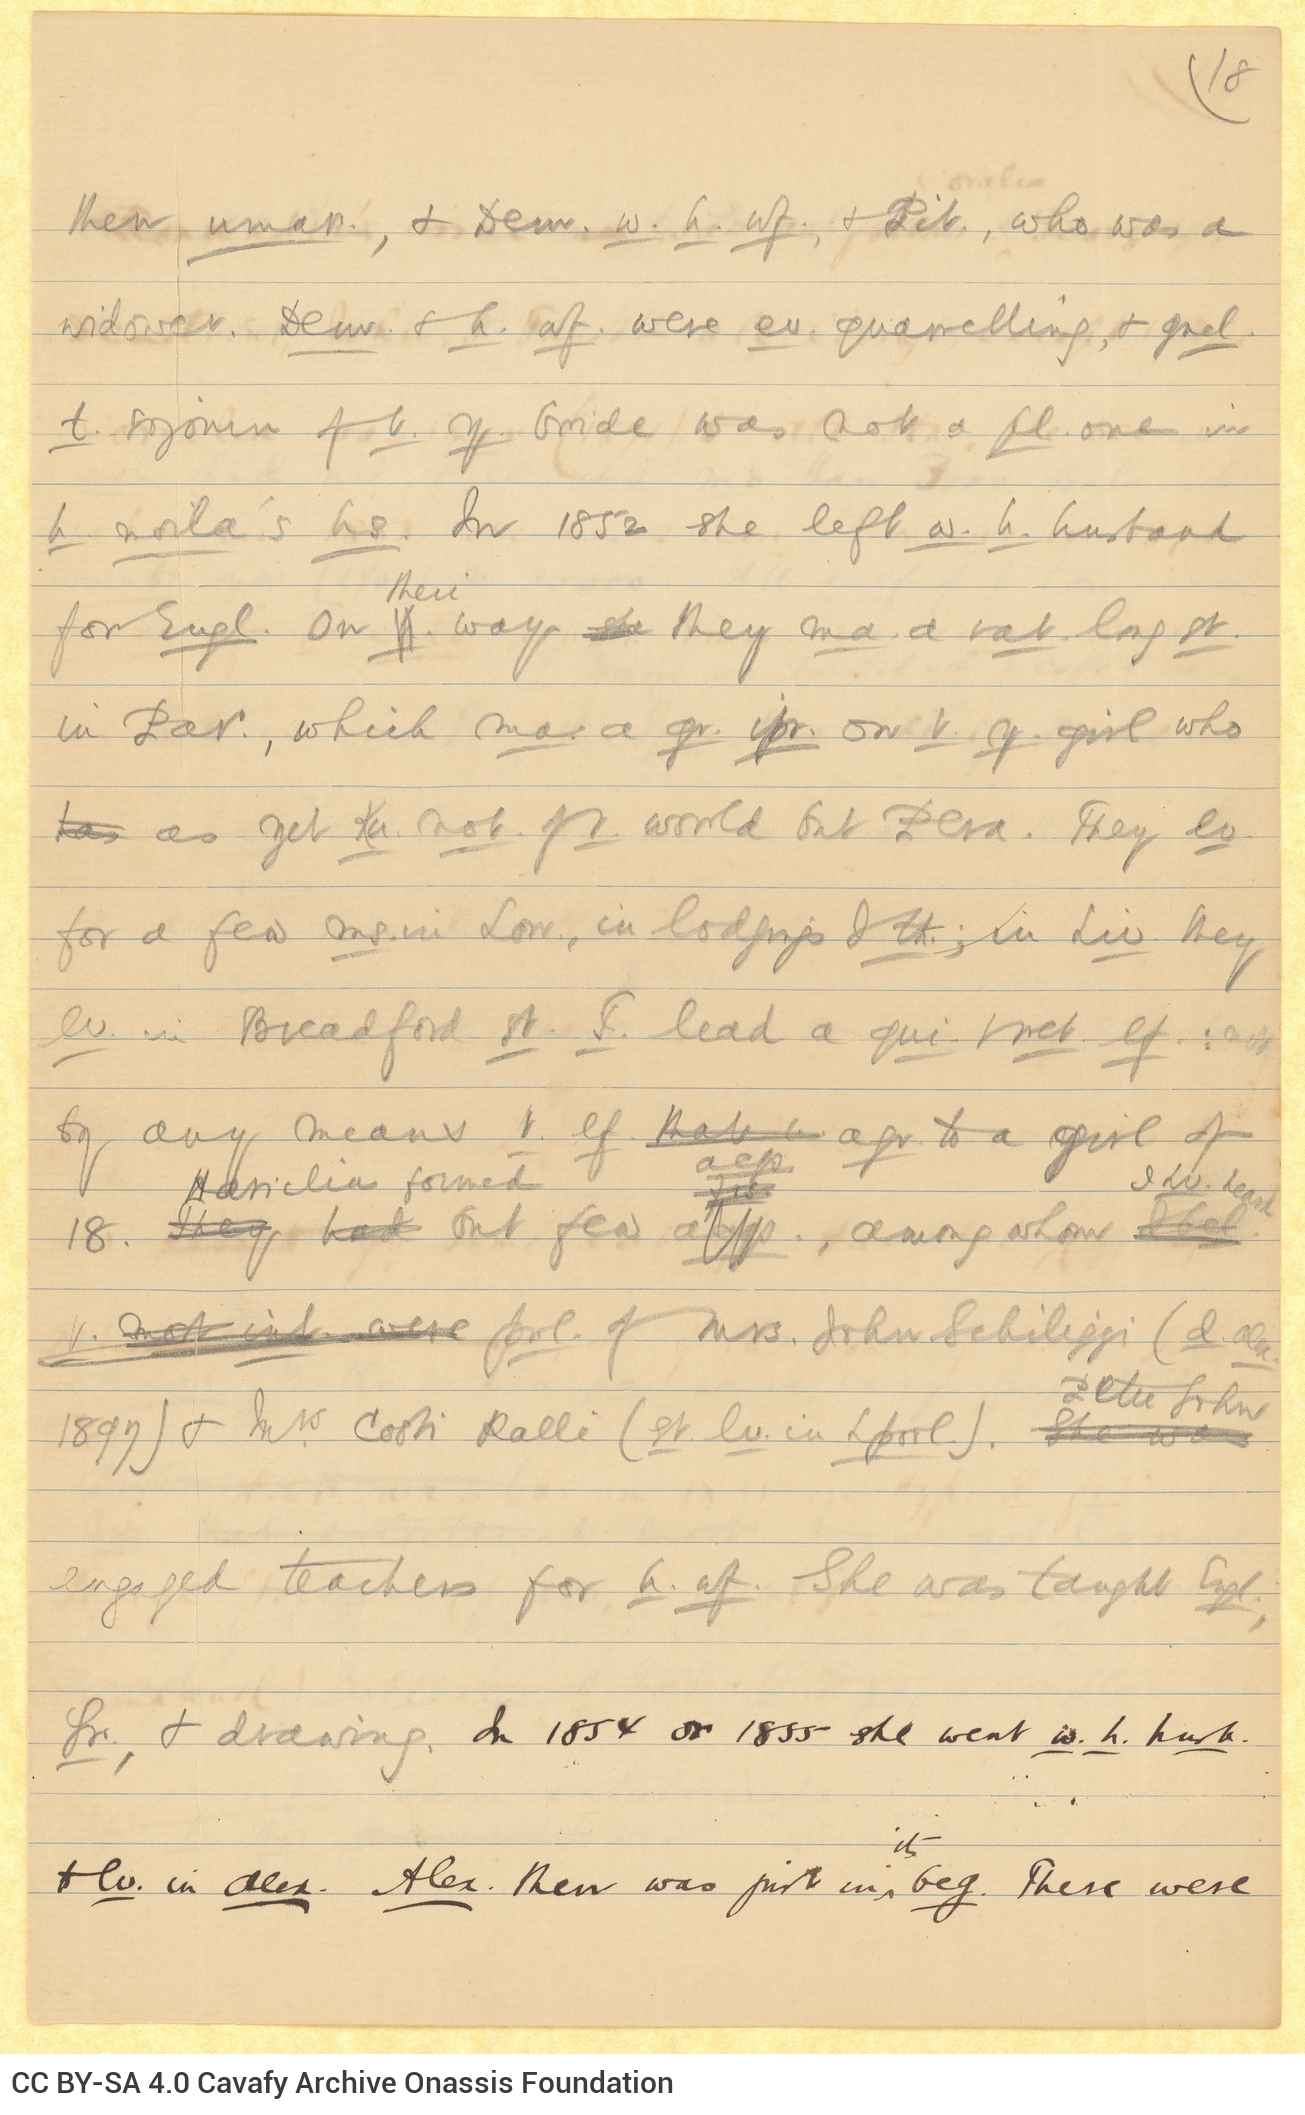 (18
then umar., & Dem. w. h. wf., & Pit., who was a
widower. Dem. & h. wf. were ev. quarrelling, & gnel.
t. sojourn of t. y. bride was not a pl. one in
h. moila's hs. In 1852 she left w. h. husband
their
for Engl. On way she they ma. a rat. long st.
in Par., which ma. a gr. ipr. on t. y. girl who
has as yet kn. not. of t. world but Pera. They lv.
for a few ms. in Lon., in lodgings I th.; in Liv. they
lv. in Breadford st. T. lead a qui. ret. lf.: not
by any means t. lf. that w. agr. to a girl of
Hariclia formed acqs I hv. heard
18. They had but few, among whom
t. most int. were prl. of Mrs. John Schilizzi (d. Alex.
Peter John
1897) & Mrs. Costi Ralli (st. lv. in Lpool.). She was
engaged teachers for h. wf. She was taught Engl.,
Fr., & drawing. In 1854 or 1855 she went w. h. husb.
its
& lv. in Alex. Alex. then was just in beg. There were
CC BY-SA 4.0 Cavafy Archive Onassis Foundation